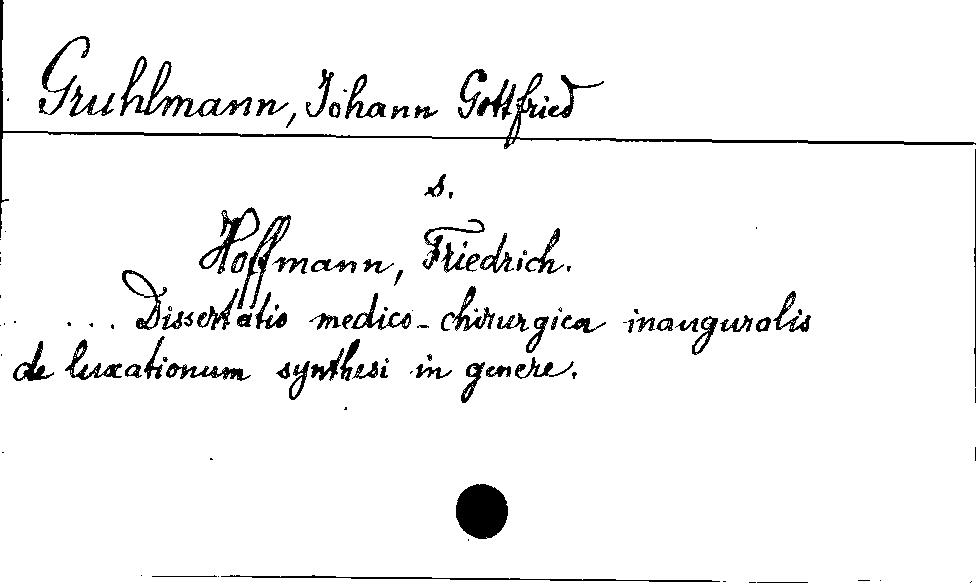 Gruhlmann, Johann Gottfried
s.
Hoffmann, Friedrich.
... Dissertatio medico-chirurgica inauguralis
de luxationum synthesi in genere.